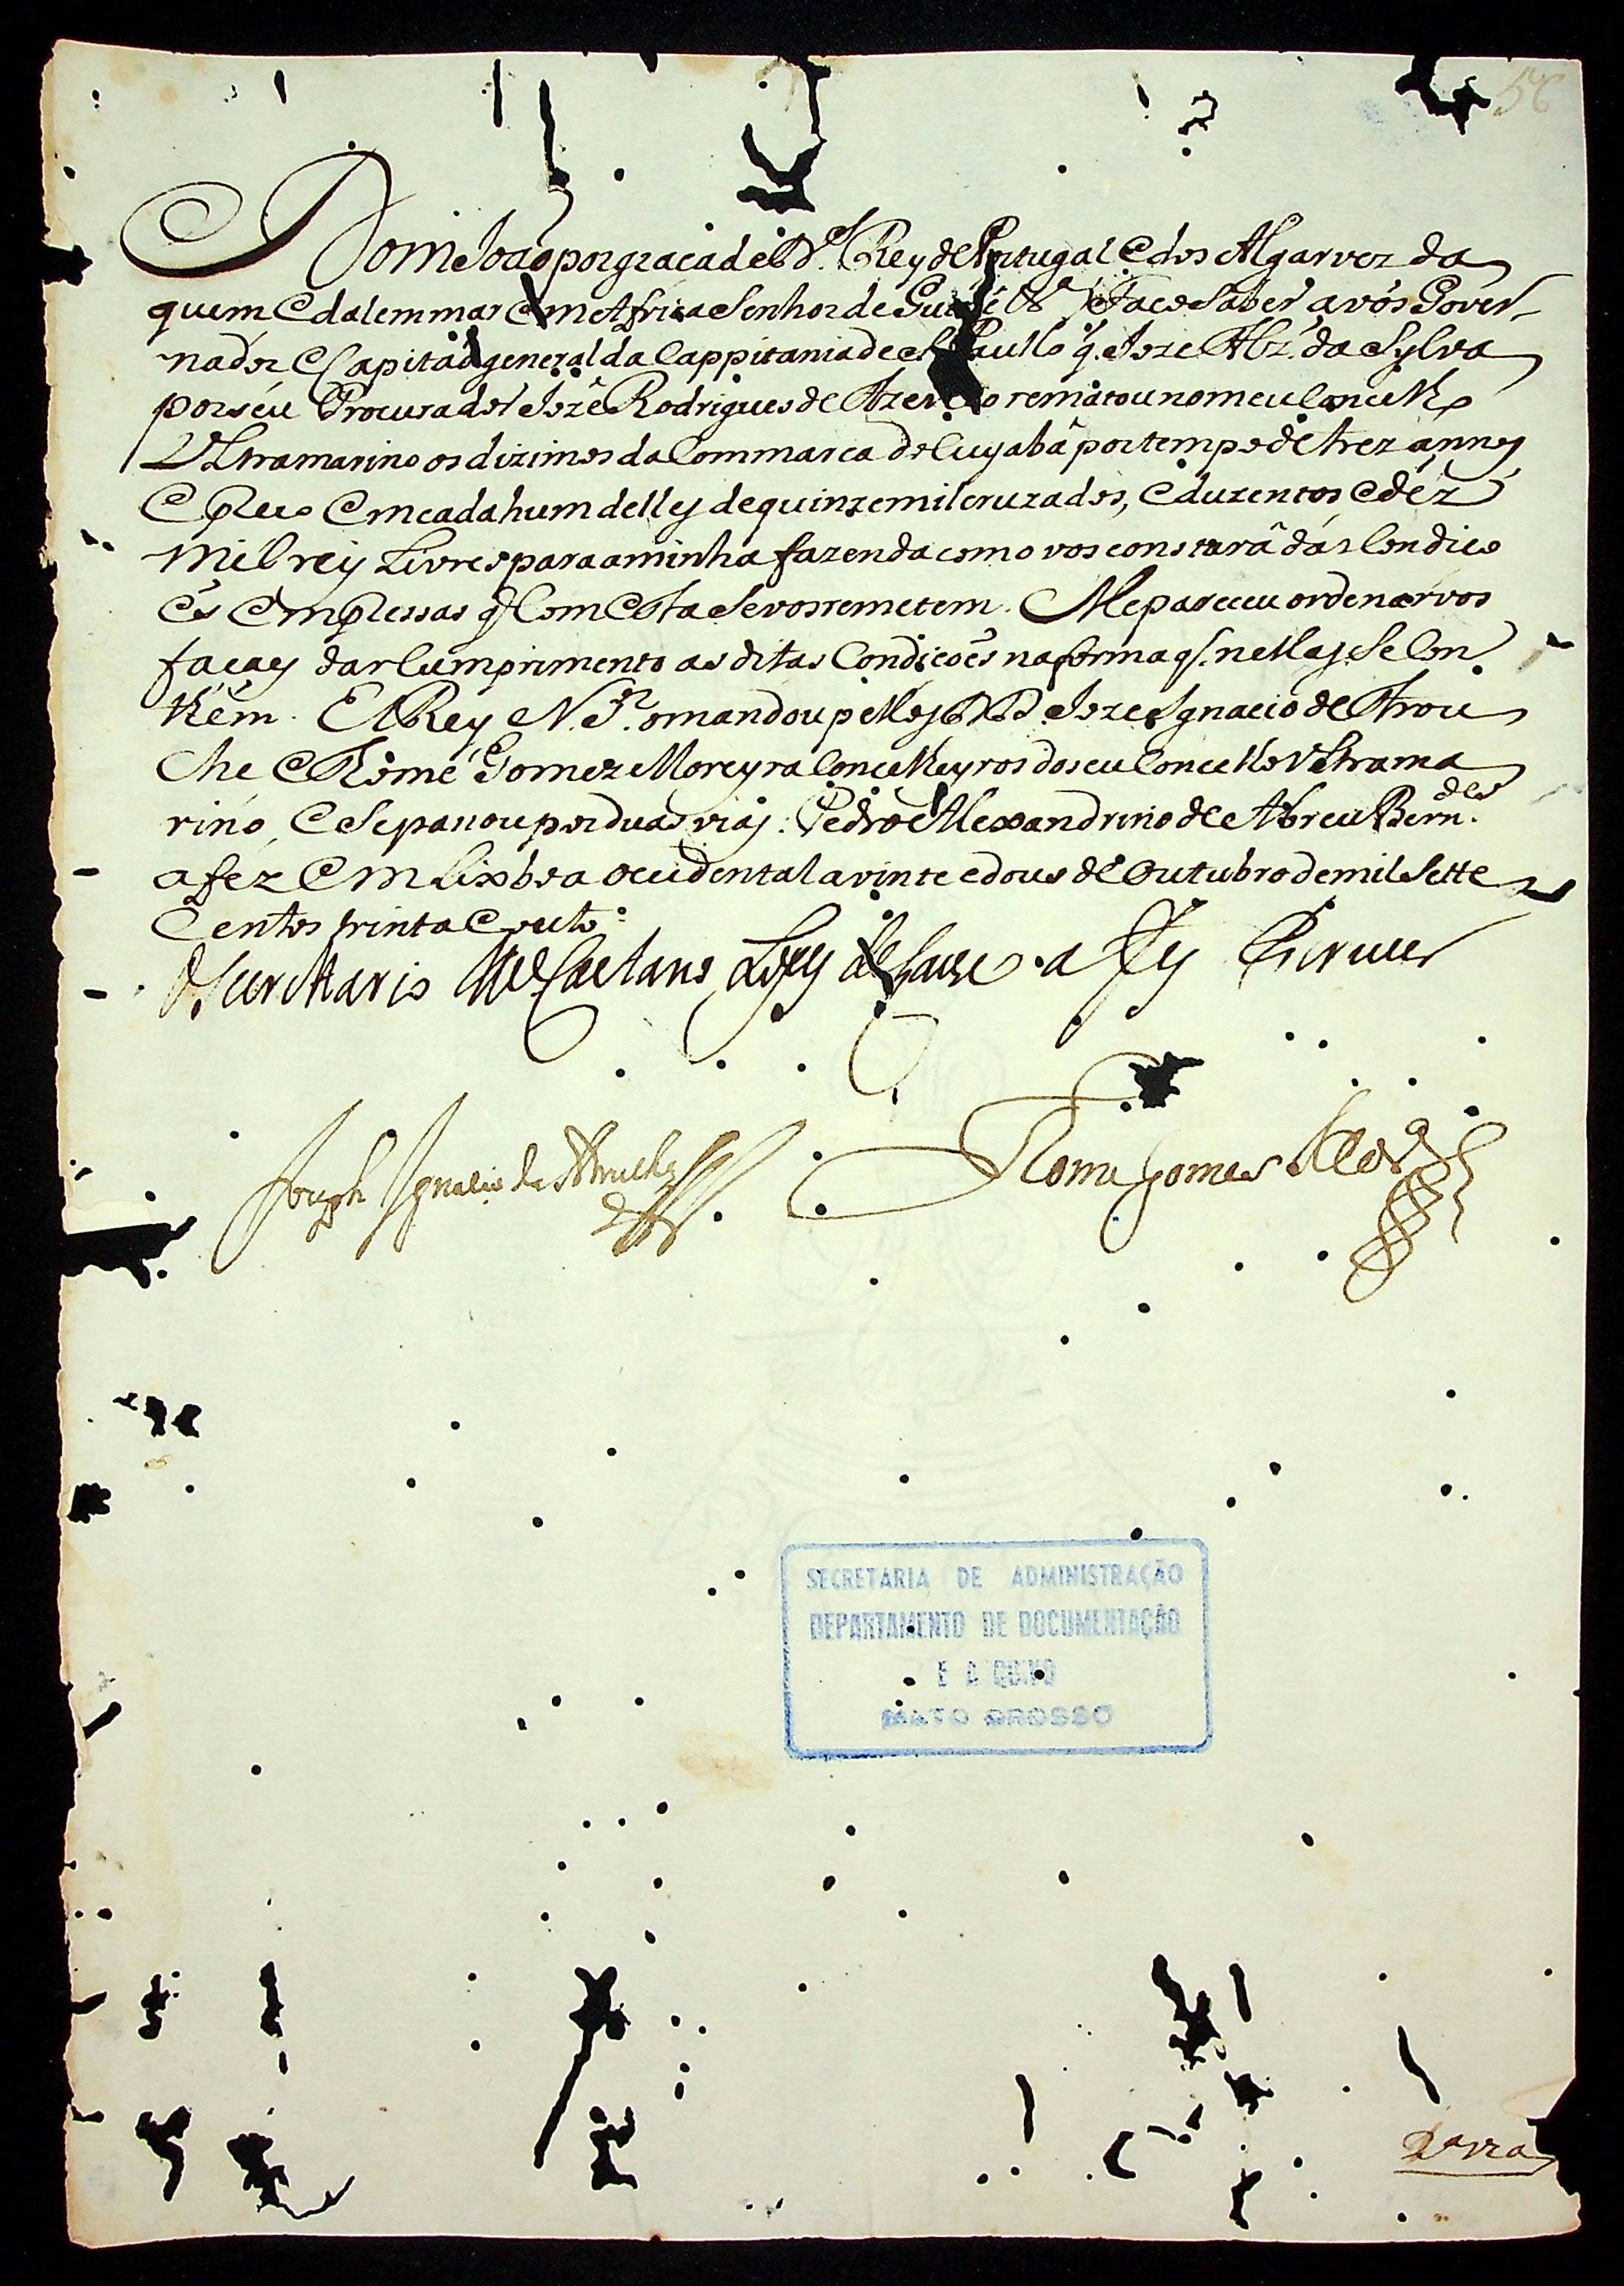 56
Dom Joaõ por graça de Ds. Rey de Portugal e dos Algarvez da
quem e dalem mar em Africa Senhor de Guiné &ª. Faço saber a vós Gover-
nador e Capitaõ general da Cappitania de S. Paullo q. Joze Alz. da Sylva
por seu Procurador Jozê Rodrigues de Azevedo rematou no meu Concelho
Ultramarino os dizimos da Commarca do Cuyabâ por tempo de trez annos
e preço em cada hum delles de quinze mil cruzados, e duzentos e déz
mil reis Livres para a minha fazenda como vos constarâ das Condiço
ẽs empressas q̃ Com esta se vos remetem. Me pareceu ordenarvos
façaes dar Cumprimento as ditas Condiçoẽs na forma q̃. nellas se Con
thém. El Rey N. Sr. o mandou pellos DD. Joze Ignacio de Arou
che e Thomé Gomez Moreyra Concelheyros do seu Concelho Ultrama
rino, e se passou por duas vias. Pedro Alexandrino de Abreu Bern.des
a féz em Lixboa occidental a vinte e dous de Outubro de mil sette
centos trinta e outo
O Secretario M.el Caetano Lopes de Lavre a fes escrever
Joseph Ignacio de Arouche
Thome Gomes Mor.a
SECRETARIA DE ADMINISTRAÇÃO
DEPARTAMENTO DE DOCUMENTAÇÃO
E
MATO GROSSO